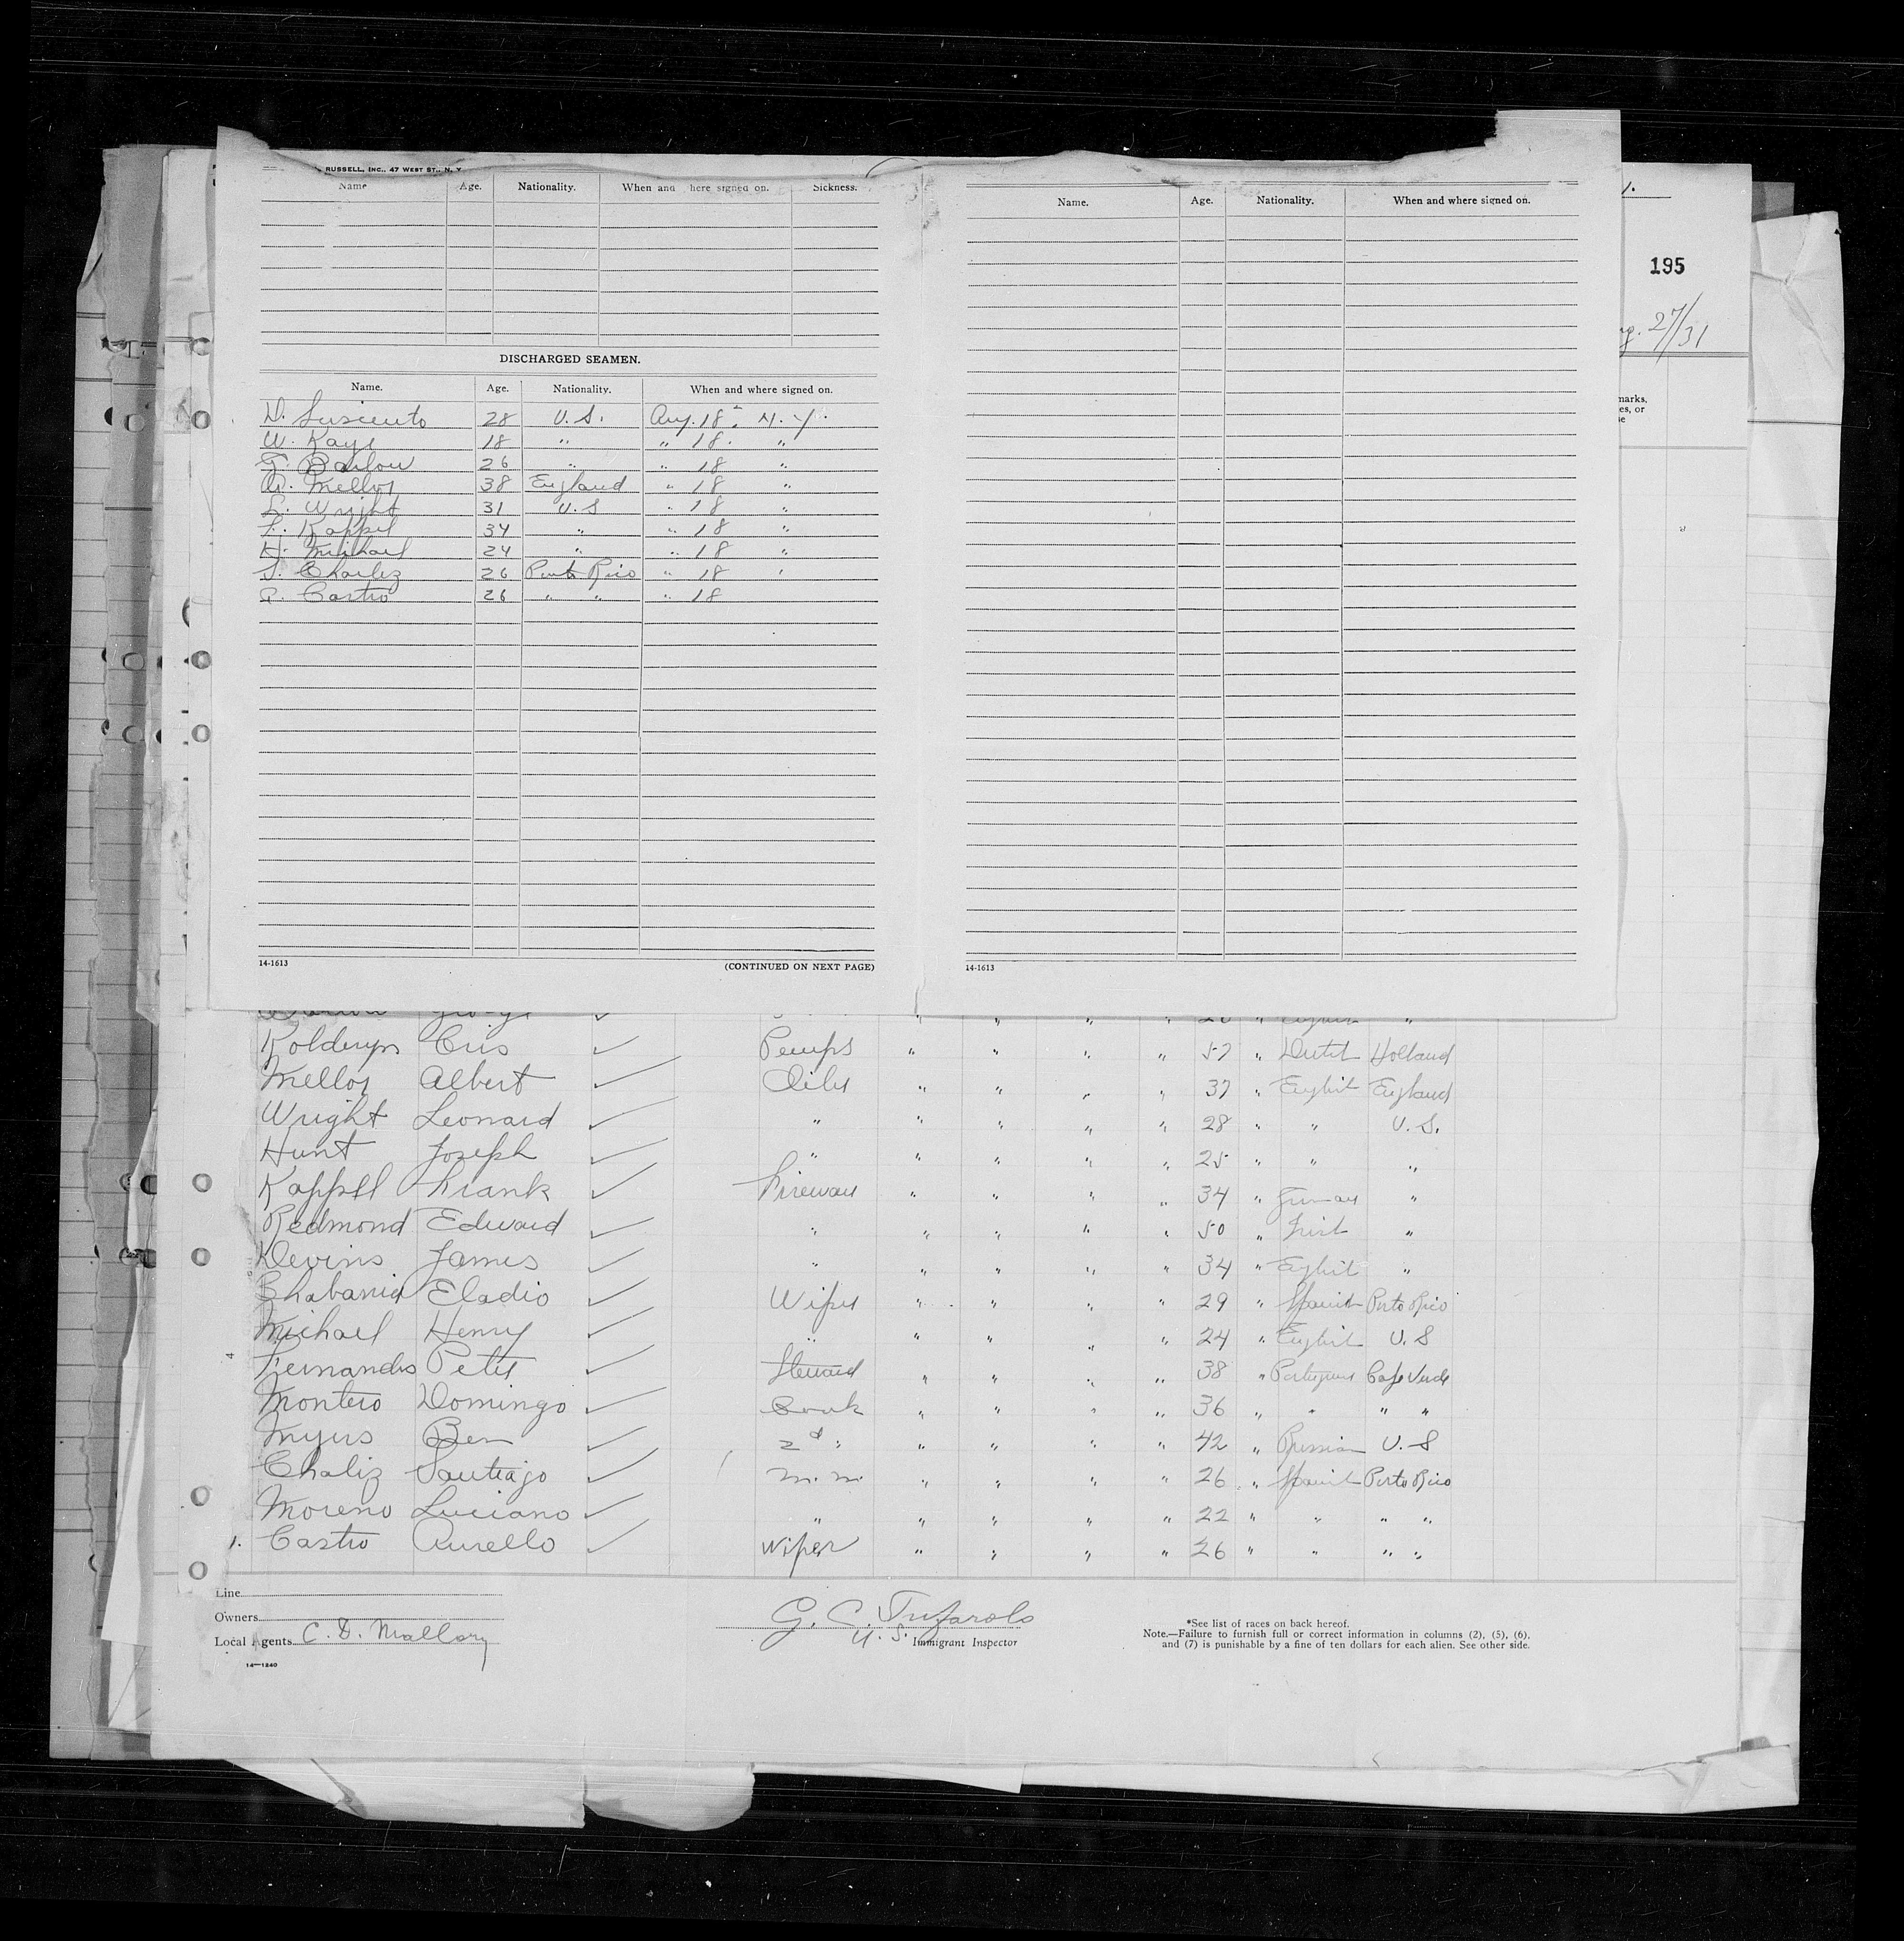 RUSSELL, INC., 47 WEST ST., N. Y
Name Age. Nationality. When and here signed on. Sickness.
DISCHARGED SEAMEN.
Name. Age. Nationality. When and where signed on.
28 U. S. Aug. 18 N. Y.
W. Kaye 18 " " 18. "
Barlow 26 " " 18 "
A. Mellor 38 England " 18 "
L. Wright 31 U. S " 18 "
F. Kappel 34 " " 18 "
H. Michael 24 " " 18 "
S. Charliz 26 Porto Rico " 18 "
Castro 26 " " " 18
14-1613 (CONTINUED ON NEXT PAGE)
Name. Age. Nationality. When and where signed on.
14-1613
195
27/31
marks,
es, or
e
Cris Pumps " " " " 57 " Dutch Holland
Mellor Albert Oiler " " " " 37 " English England
Wright Leonard " " " " " 28 " " U. S.
Hunt Joseph " " " " " 25 " " "
Kappel Frank Fireman " " " " 34 " German "
Redmond Edward " " " " " 50 " Irish "
Devins James " " " " " 34 " English "
Eladio Wiper " " " " 29 " Spanish Porto Rico
Michael Henry " " " " " 24 " English U. S
Fernandes Peter Steward " " " " 38 " Portuguese Cape Verde
Montero Domingo Cook " " " " 36 " " " "
Myers Ben 2d " " " " " 42 " Russian U. S
Chaliz Santiago m. m. " " " " 26 " Spanish Porto Rico
Moreno Luciano " " " " " 22 " " " "
1. Castro Aurello Wiper " " " " 26 " " " "
Line
Owners
Local Agents C. D. Mallory
14—1240
G. C.
U. S. Immigrant Inspector
*See list of races on back hereof.
Note.—Failure to furnish full or correct information in columns (2), (5), (6),
and (7) is punishable by a fine of ten dollars for each alien. See other side.